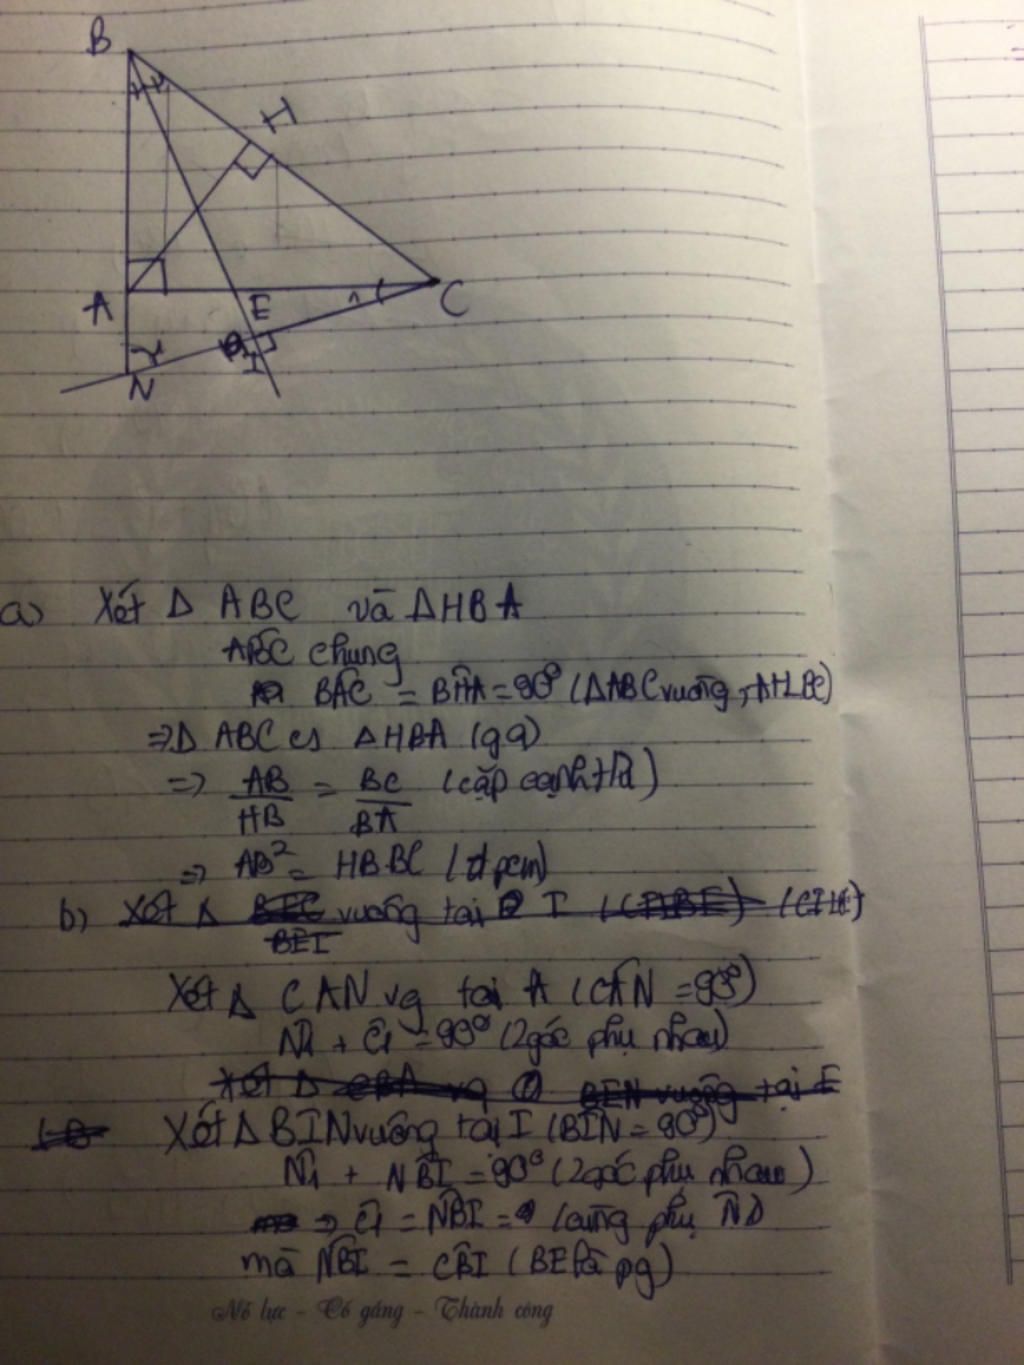 B
H
A
E
C
1
I
N
a) Xét Δ ABC và ΔHBA
ABC chung
BAC = BHA = 90° (ΔABC vuông, AH⊥BC)
⇒Δ ABC ∽ ΔHBA (gg)
⇒ AB/HB = BC/BA (cặp cạnh)
⇒ AB² = HB BC (đpcm)
b) Xét Δ BEC vuông tại I
BEI
Xét Δ CAN vg tại A (CAN = 90°)
N1 + C1 = 90° (2 góc phụ nhau)
Xét Δ CBA vg BEN vuông tại E
Xét Δ BIN vuông tại I (BIN = 90°)
N1 + NBI = 90° (2 góc phụ nhau)
⇒ C1 = NBI = (cùng phụ N1)
mà NBI = CBI (BE là pg)
Nỗ lực - Cố gắng - Thành công